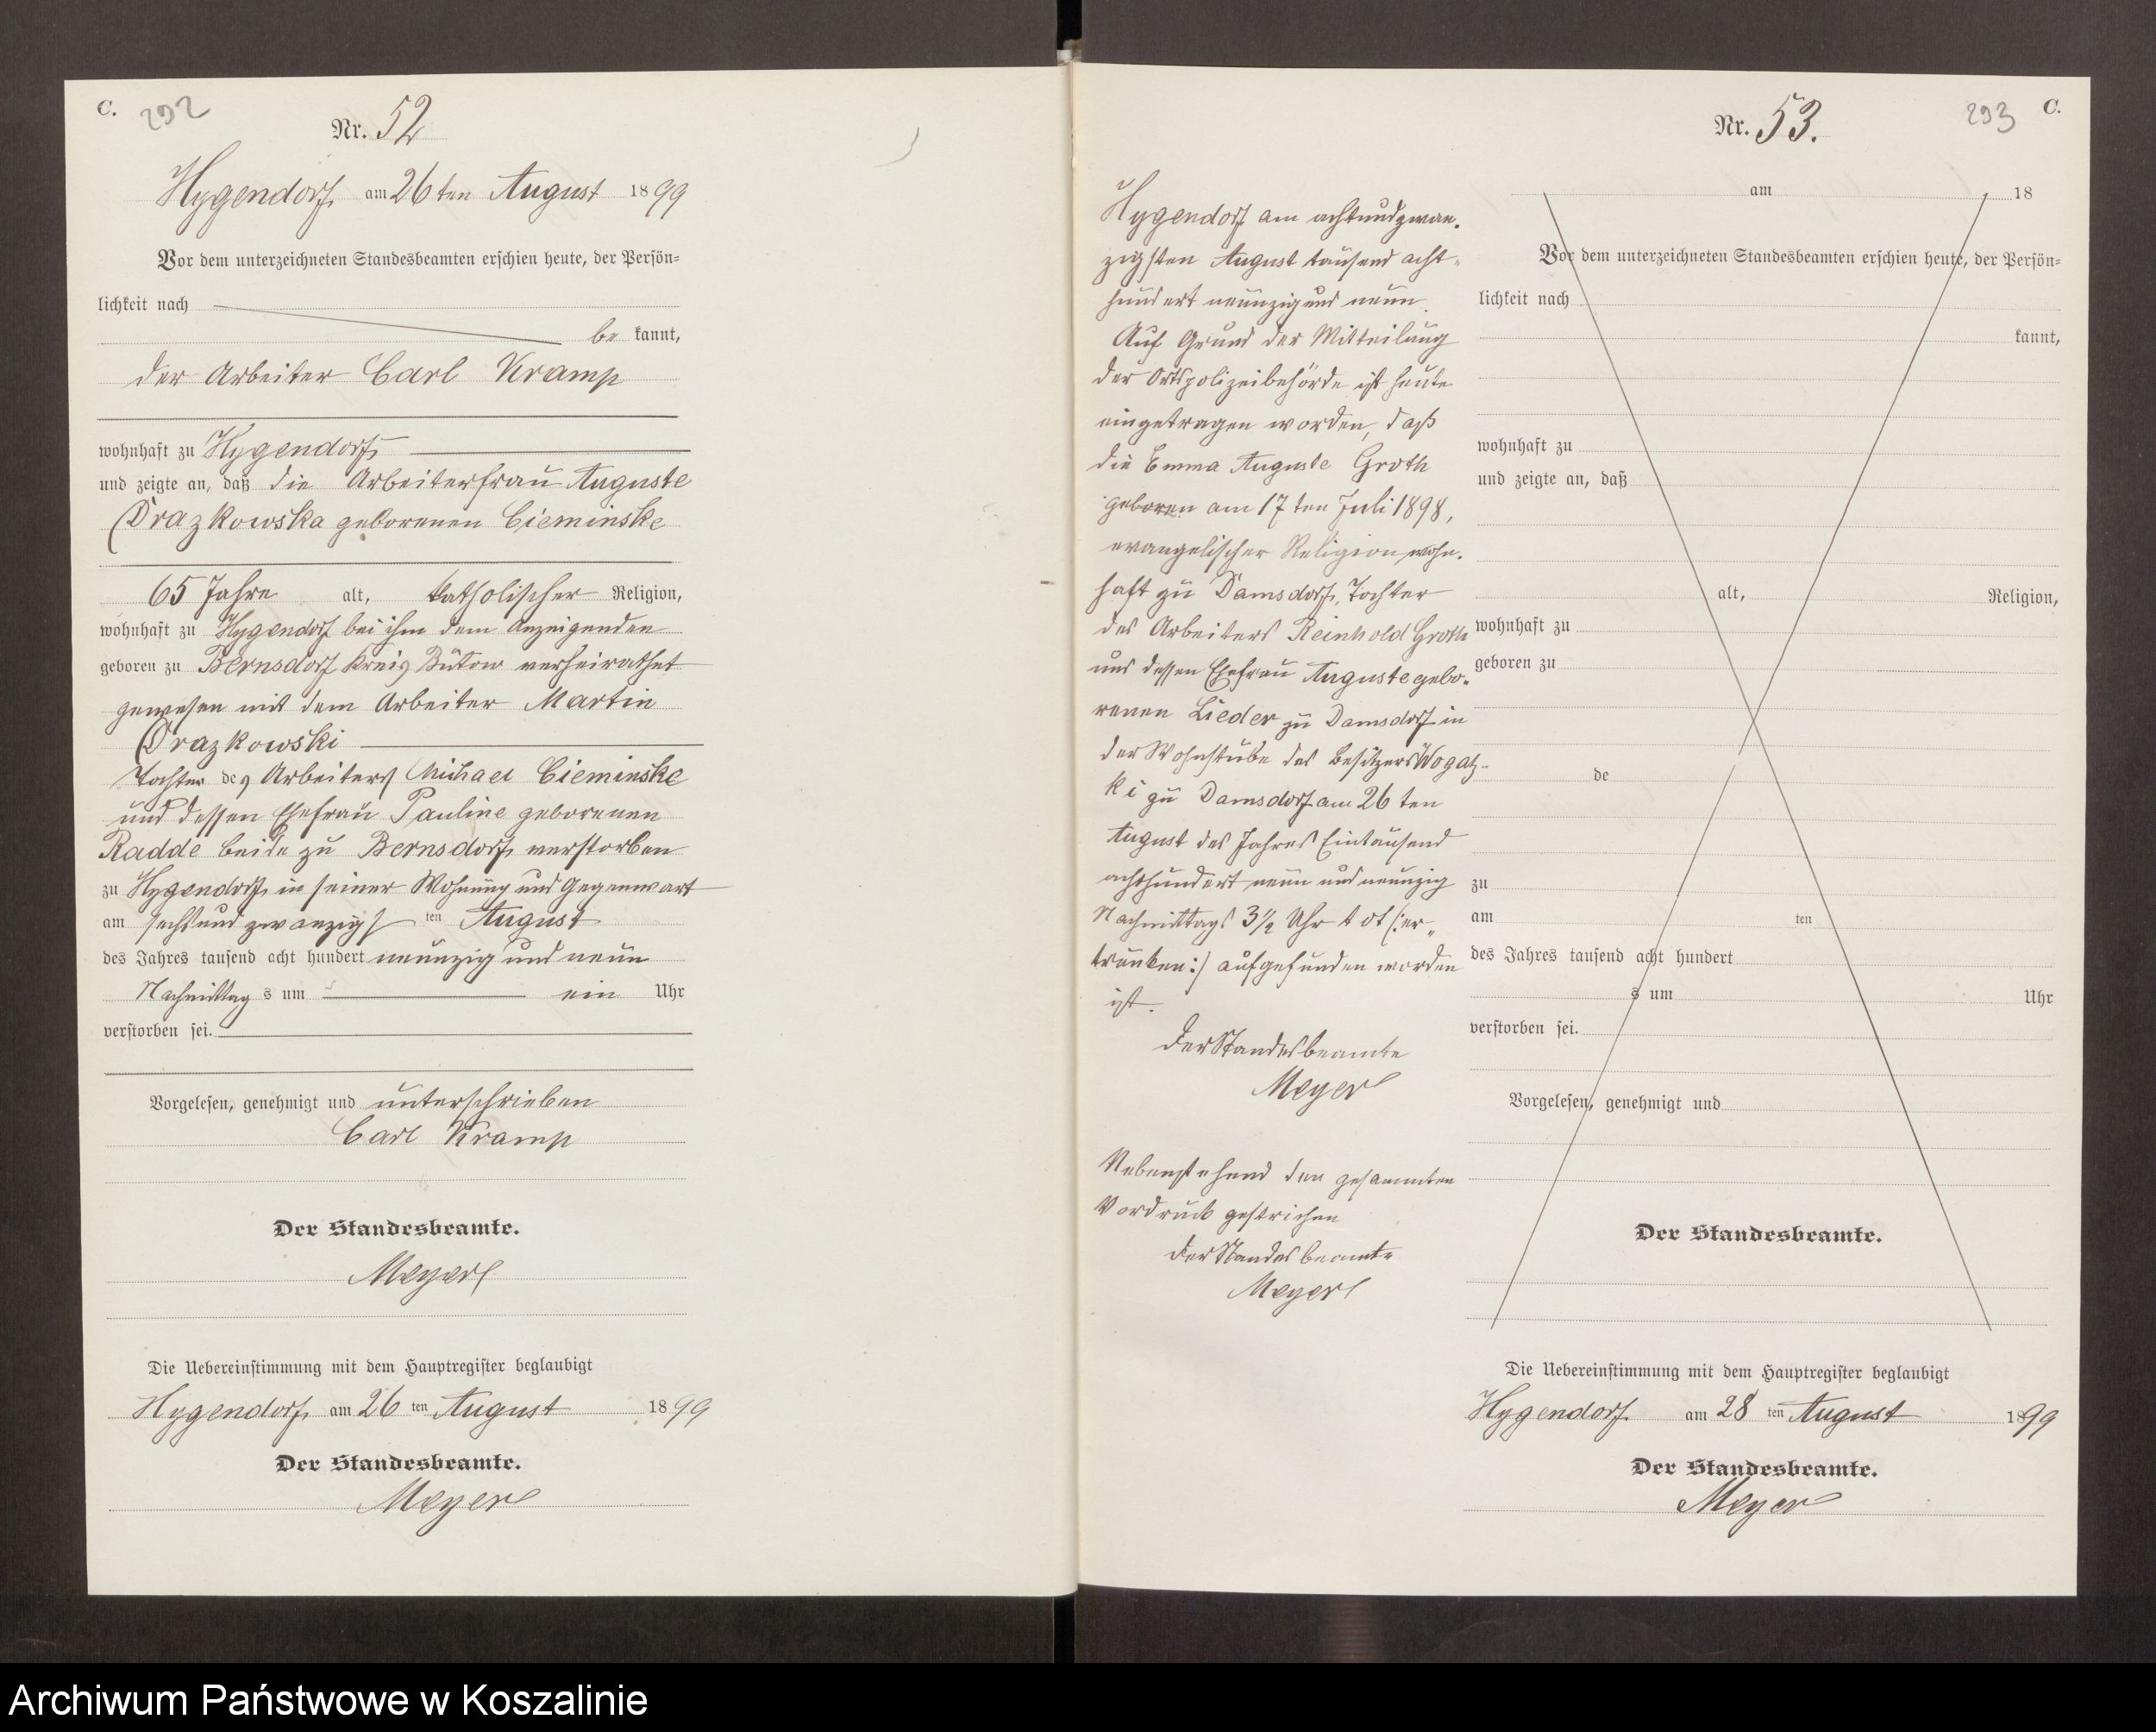 C. 292
Nr. 52
Hygendorf am 26ten August 1899
Vor dem unterzeichneten Standesbeamten erschien heute, der Persön=
lichkeit nach
be kannt,
der Arbeiter Carl Kramp
wohnhaft zu Hygendorf
und zeigte an, daß die Arbeiterfrau Auguste
Drazkowska geborenen Cieminske
65 Jahre alt, katholischer Religion,
wohnhaft zu Hygendorf bei ihm dem Anzeigenden
geboren zu Bernsdorf Kreis Bütow verheirathet
gewesen mit dem Arbeiter Martin
Drazkowski
Tochter des Arbeiters Michael Cieminske
und dessen Ehefrau Pauline geborenen
Radde beide zu Bernsdorf verstorben
zu Hygendorf in seiner Wohnung und Gegenwart
am sechsundzwanzigst ten August
des Jahres tausend acht hundert neunzig und neun
Nachmittag s um ein Uhr
verstorben sei.
Vorgelesen, genehmigt und unterschrieben
Carl Kramp
Der Standesbeamte.
Meyer
Die Uebereinstimmung mit dem Hauptregister beglaubigt
Hygendorf am 26 ten August 1899
Der Standesbeamte.
Meyer
Nr. 53. 293 C.
Hygendorf am achtundzwan-
zigsten August tausend acht-
hundert neunzig und neun.
Auf Grund der Mitteilung
der Ortspolizeibehörde ist heute
eingetragen worden, daß
die Emma Auguste Groth
geboren am 17ten Juli 1898,
evangelischer Religion, wohn-
haft zu Damsdorf, Tochter
des Arbeiters Reinhold Groth
und dessen Ehefrau Auguste gebo-
renen Lieder zu Damsdorf in
der Wohnstube des Besitzers Wogatz-
ki zu Damsdorf am 26ten
August des Jahres Eintausend
achthundert neun und neunzig
Nachmittags 3½ Uhr tot (: er-
trunken :) aufgefunden worden
ist.
Der Standesbeamte
Meyer
Nebenstehend den gesammten
Vordruck gestrichen
Der Standesbeamte
Meyer
am 18
Vor dem unterzeichneten Standesbeamten erschien heute, der Persön=
lichkeit nach
kannt,
wohnhaft zu
und zeigte an, daß
alt, Religion,
wohnhaft zu
geboren zu
de
zu
am ten
des Jahres tausend acht hundert
s um Uhr
verstorben sei.
Vorgelesen, genehmigt und
Der Standesbeamte.
Die Uebereinstimmung mit dem Hauptregister beglaubigt
Hygendorf am 28 ten August 1899
Der Standesbeamte.
Meyer
Archiwum Państwowe w Koszalinie